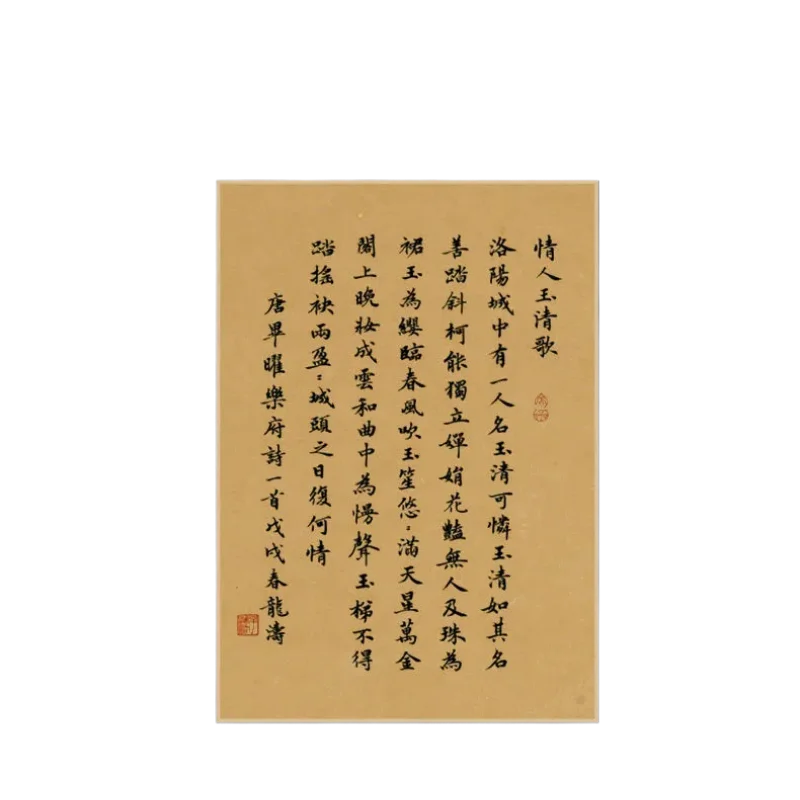 情人玉清歌
洛陽城中有一人名玉清可憐玉清如其名
善踏斜柯能獨立嬋娟花豔無人及珠為
裙玉為纓臨春風吹玉笙悠〻滿天星萬金
閣上晚妝成雲和曲中為慢聲玉梯不得
踏搖袂兩盈〻城頭之日復何情
唐畢曜樂府詩一首戊戌春龍濤